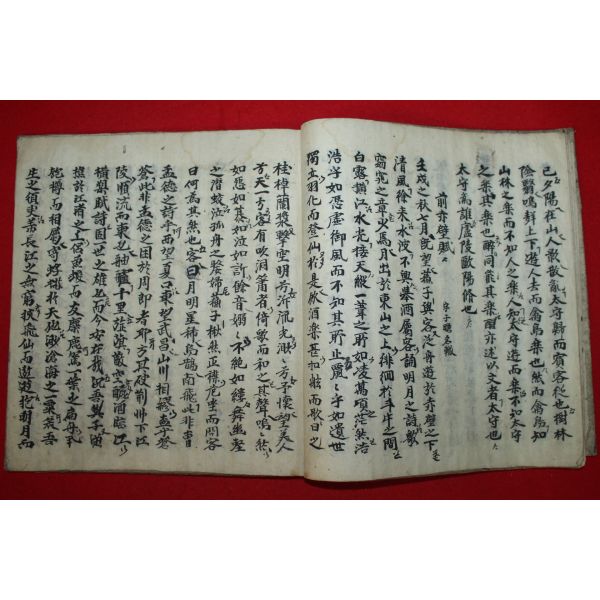 已夕陽在山人影散亂太守歸而賓客從也樹林
陰翳鳴聲上下遊人去而禽鳥樂也然而禽鳥知
山林之樂而不知人之樂人知太守遊而樂而不知太守
之樂其樂也醉同能其樂醒能述以文者太守也
太守爲誰廬陵歐陽脩也
前赤壁賦 字子瞻名軾
壬戌之秋七月旣望蘇子與客泛舟遊於赤壁之下
清風徐來水波不興擧酒屬客誦明月之詩歌
窈窕之章少焉月出於東山之上徘徊於斗牛之間
白露橫江水光接天縱一葦之所如凌萬頃茫然浩
浩乎如憑虛御風而不知其所止飄〻乎如遺世
獨立羽化而登仙於是飮酒樂甚扣舷而歌曰
桂棹蘭槳擊空明兮泝流光渺〻兮予懷望美人
兮天一方客有吹洞簫者倚歌而和之其聲嗚〻然
如怨如慕如泣如訴餘音嫋〻不絶如縷舞幽壑
之潛蛟泣孤舟之嫠婦蘇子愀然正襟危坐而問客
曰何爲其然也客曰月明星稀烏鵲南飛此非曹
孟德之詩乎西望夏口東望武昌山川相繆鬱乎蒼
蒼此非孟德之困於周郞者乎方其破荊州下江
陵順流而東也舳艫千里旌旗蔽空釃酒臨江
橫槊賦詩固世之雄也而今安在哉況吾與子漁
樵於江渚之上侶魚蝦而友麋鹿駕一葉之扁舟擧
匏樽而相屬寄蜉蝣於天地渺滄海之一粟哀吾
生之須臾羨長江之無窮挾飛仙而遨遊抱明月而